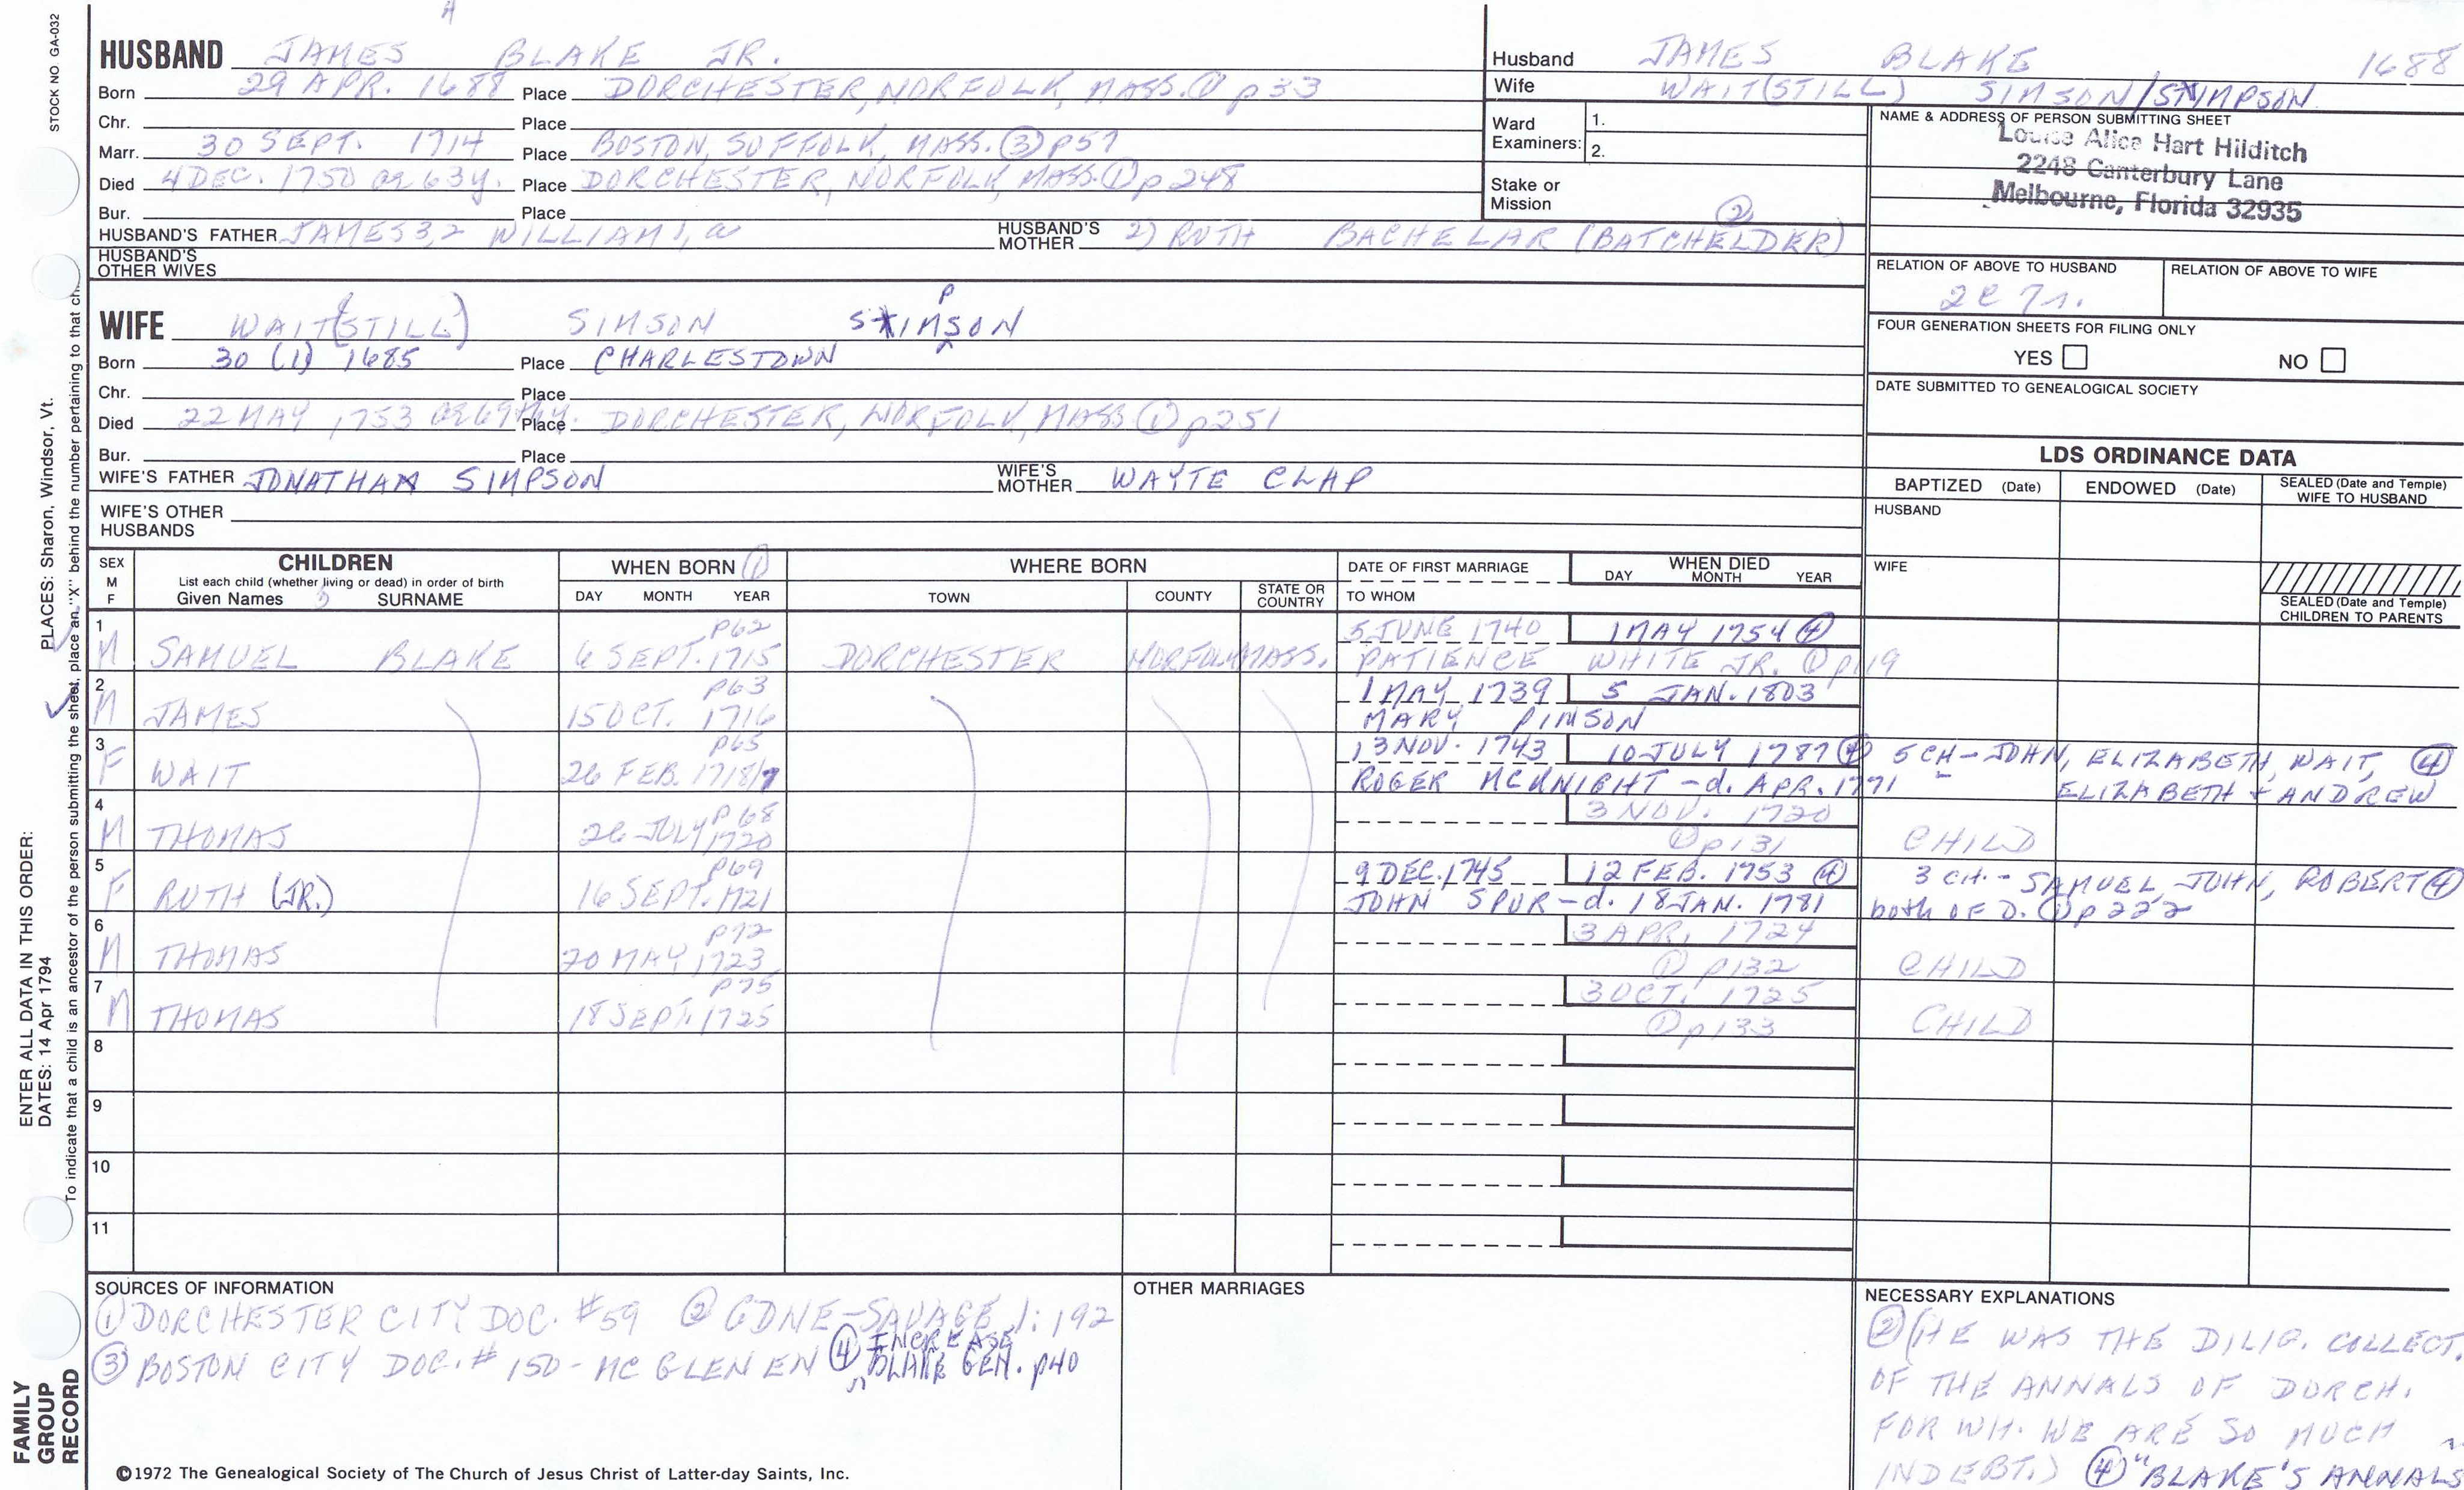 STOCK NO. GA-032
HUSBAND JAMES BLAKE JR.
Born 29 APR. 1688 Place DORCHESTER, NORFOLK, MASS. ① p33
Chr. Place
Marr. 30 SEPT. 1714 Place BOSTON, SUFFOLK, MASS. ③ p57
Died 4 DEC. 1750 ae 63y. Place DORCHESTER, NORFOLK, MASS. ① p248
Bur. Place
HUSBAND'S FATHER JAMES 3,2 WILLIAM 1, a HUSBAND'S MOTHER 2) RUTH BACHELAR (BATCHELDER) ②
HUSBAND'S OTHER WIVES
Husband JAMES BLAKE 1688
Wife WAIT(STILL) SIMSON/STIMPSON
Ward Examiners: 1.
2.
Stake or Mission
NAME & ADDRESS OF PERSON SUBMITTING SHEET
Louise Alice Hart Hilditch
2248 Canterbury Lane
Melbourne, Florida 32935
RELATION OF ABOVE TO HUSBAND RELATION OF ABOVE TO WIFE
2C 7r.
FOUR GENERATION SHEETS FOR FILING ONLY
YES NO
DATE SUBMITTED TO GENEALOGICAL SOCIETY
WIFE WAIT(STILL) SIMSON STIMPSON
Born 30 (1) 1685 Place CHARLESTOWN
Chr. Place
Died 22 MAY 1753 ae 69thy. Place DORCHESTER, NORFOLK, MASS ① p251
Bur. Place
WIFE'S FATHER JONATHAN SIMPSON WIFE'S MOTHER WAYTE CLAP
WIFE'S OTHER HUSBANDS
LDS ORDINANCE DATA
BAPTIZED (Date) ENDOWED (Date) SEALED (Date and Temple) WIFE TO HUSBAND
HUSBAND
WIFE
SEALED (Date and Temple) CHILDREN TO PARENTS
SEX M F CHILDREN WHEN BORN ① WHERE BORN DATE OF FIRST MARRIAGE WHEN DIED
List each child (whether living or dead) in order of birth DAY MONTH YEAR
Given Names SURNAME DAY MONTH YEAR TOWN COUNTY STATE OR COUNTRY TO WHOM
1 p62 5 JUNE 1740 1 MAY 1754 ④
M SAMUEL BLAKE 6 SEPT. 1715 DORCHESTER NORFOLK MASS. PATIENCE WHITE JR. ① p119
2 p63 1 MAY 1739 5 JAN. 1803
M JAMES 15 OCT. 1716 MARY PIMSON
3 p65 13 NOV. 1743 10 JULY 1787 ④ 5 CH - JOHN, ELIZABETH, WAIT, ④
F WAIT 26 FEB. 1718/7 ROGER MCKNIGHT - d. APR. 1791 ELIZABETH + ANDREW
4 p68 3 NOV. 1720
M THOMAS 26 JULY 1720 ① p131 CHILD
5 p69 9 DEC. 1745 12 FEB. 1753 ④ 3 CH. - SAMUEL, JOHN, ROBERT ④
F RUTH (JR.) 16 SEPT. 1721 JOHN SPUR - d. 18 JAN. 1781 both OF D. ① p222
6 p72 3 APR. 1724
M THOMAS 20 MAY 1723 ① p132 CHILD
7 p75 3 OCT. 1725
M THOMAS 18 SEPT. 1725 ① p133 CHILD
8
9
10
11
SOURCES OF INFORMATION
① DORCHESTER CITY DOC. #59 ② GDNE-SAVAGE 1:192
③ BOSTON CITY DOC. # 150 - MC GLENEN ④ INCREASE BLAKE GEN. p40
OTHER MARRIAGES
NECESSARY EXPLANATIONS
② (HE WAS THE DILIG. COLLECT.
OF THE ANNALS OF DORCH.
FOR WH. WE ARE SO MUCH
INDEBT.) ④ "BLAKE'S ANNALS
©1972 The Genealogical Society of The Church of Jesus Christ of Latter-day Saints, Inc.
FAMILY GROUP RECORD
ENTER ALL DATA IN THIS ORDER:
DATES: 14 Apr 1794 PLACES: Sharon, Windsor, Vt.
To indicate that a child is an ancestor of the person submitting the sheet, place an "X" behind the number pertaining to that ch